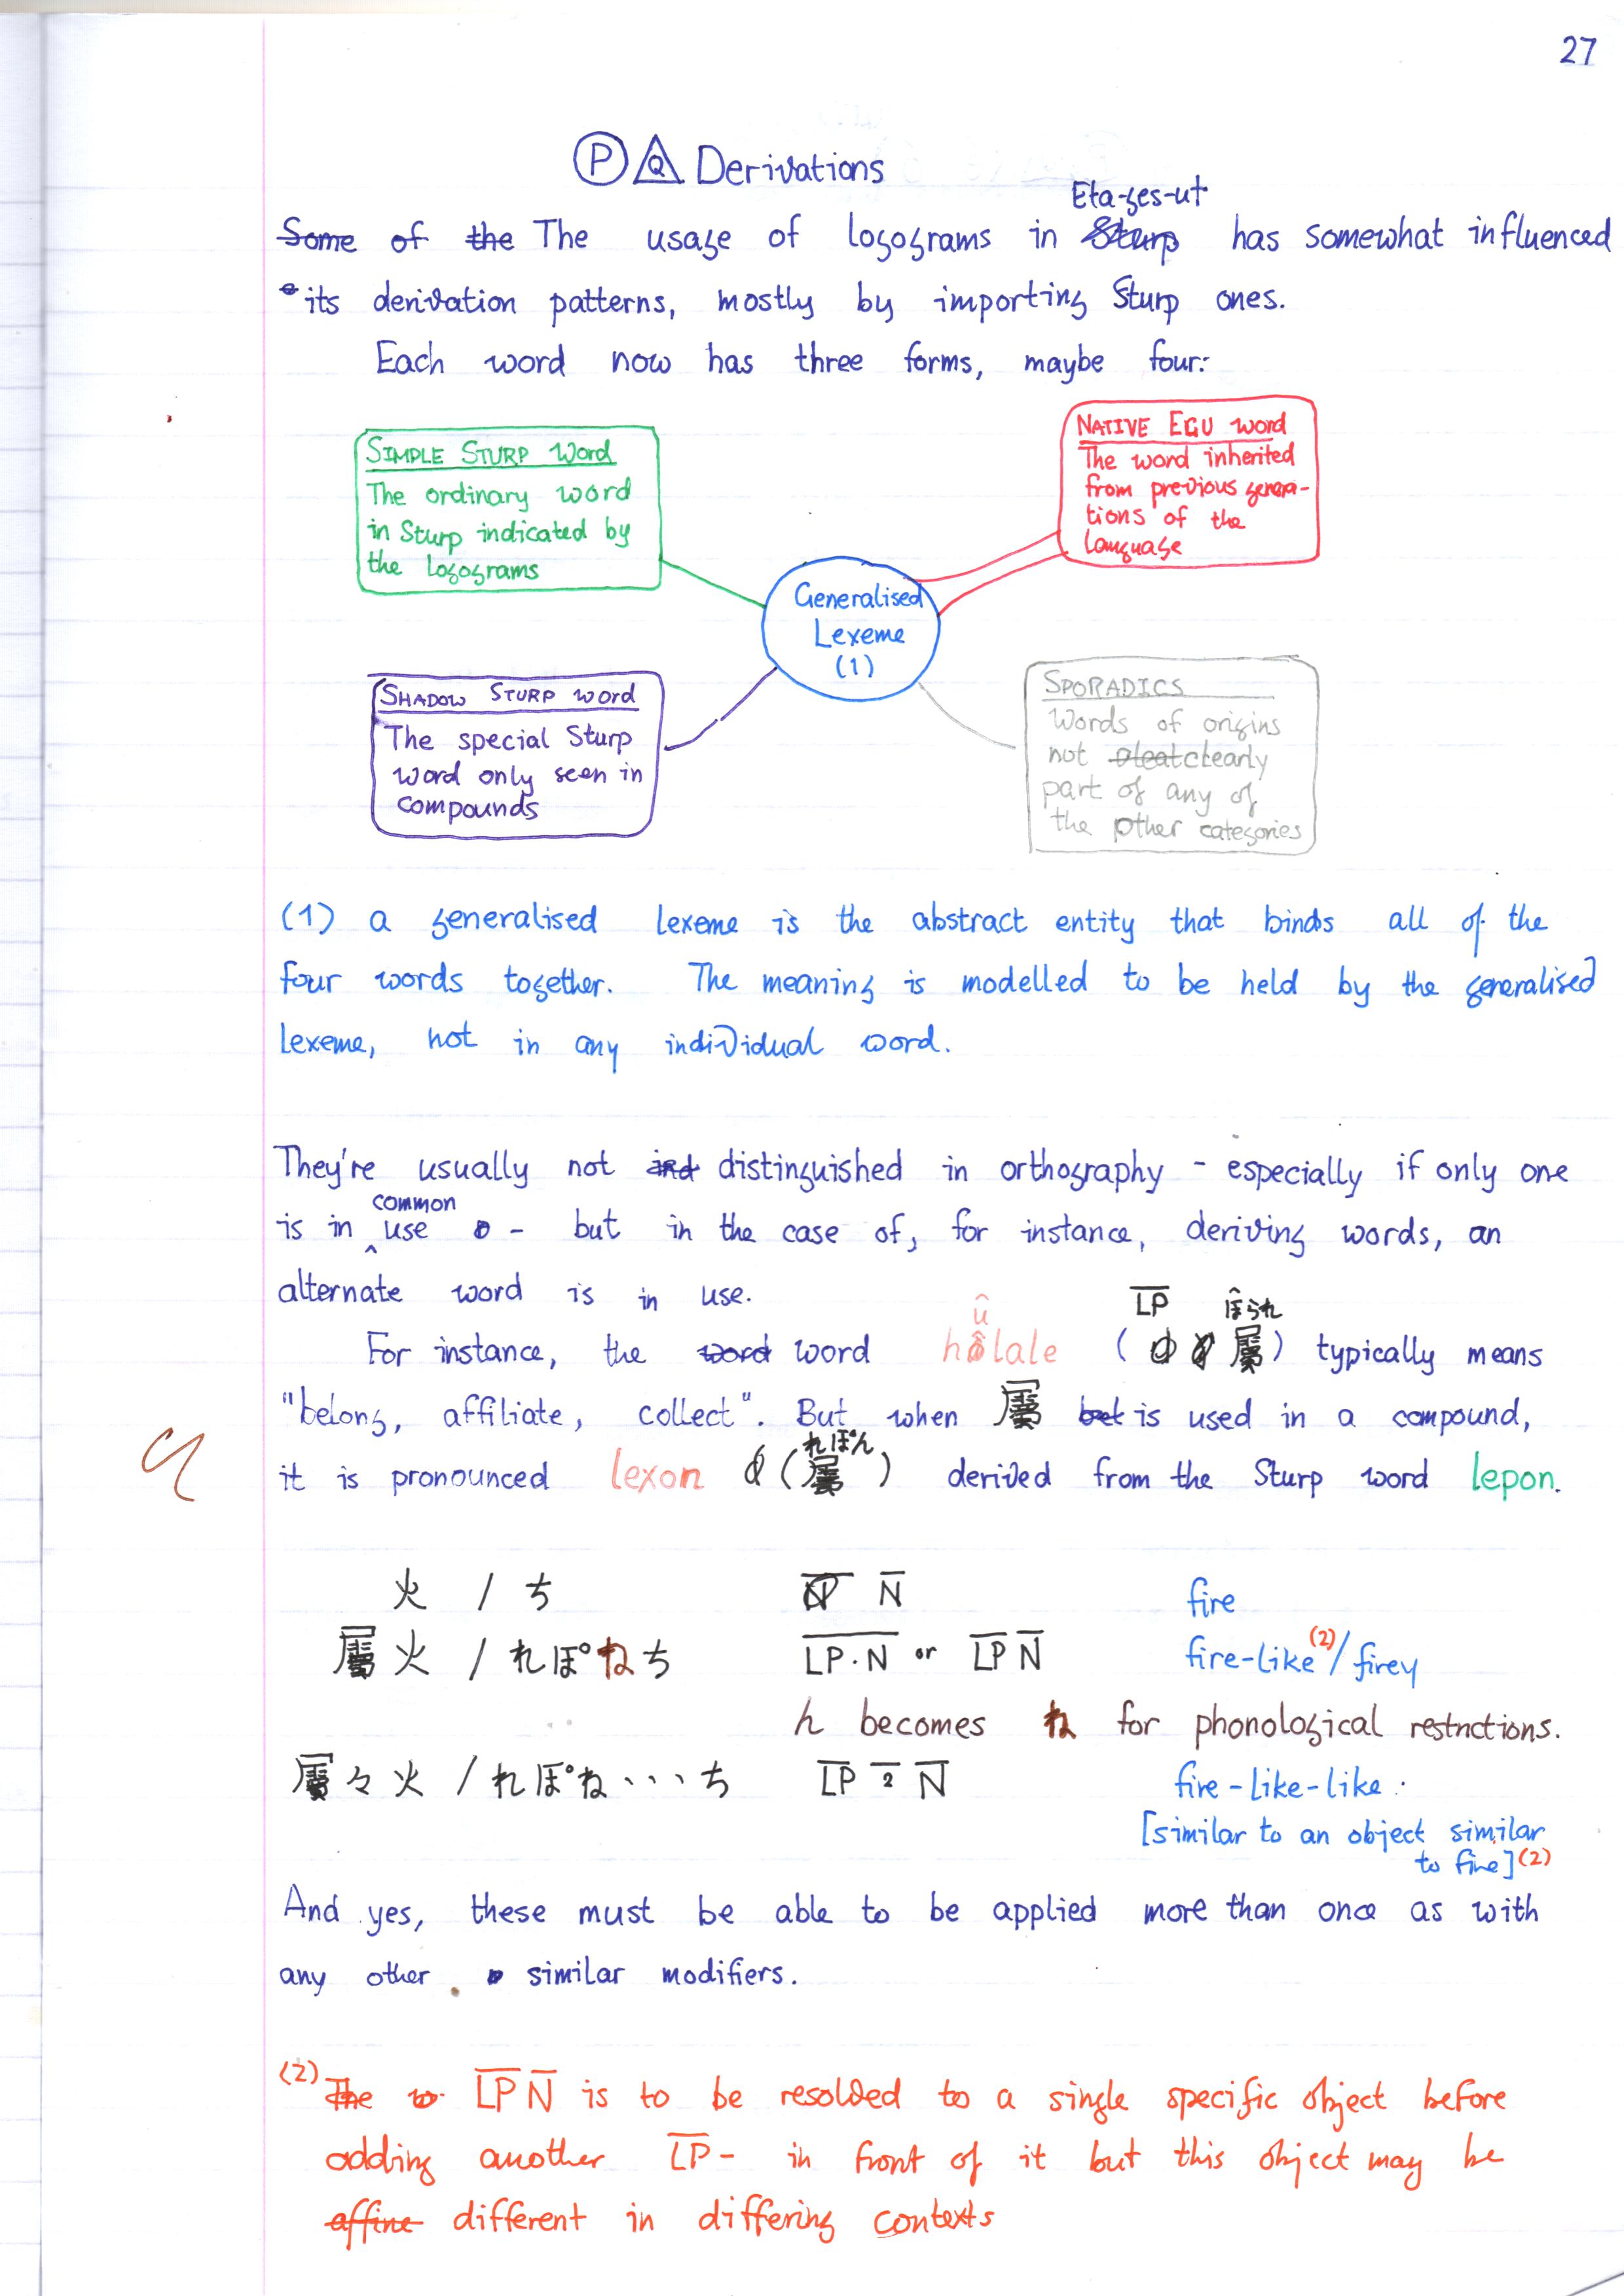 27
Ⓟ Q Derivations
Eta-ges-ut
Some of the The usage of logograms in Sturp has somewhat influenced
its derivation patterns, mostly by importing Sturp ones.
Each word now has three forms, maybe four:
SIMPLE STURP Word
The ordinary word
in Sturp indicated by
the logograms
NATIVE EGU word
The word inherited
from previous genera-
tions of the
language
Generalised
Lexeme
(1)
SHADOW STURP word
The special Sturp
word only seen in
compounds
SPORADICS
Words of origins
not clearly
part of any of
the other categories
(1) a generalised lexeme is the abstract entity that binds all of the
four words together. The meaning is modelled to be held by the generalised
lexeme, not in any individual word.
They're usually not ind distinguished in orthography - especially if only one
common
is in ‸ use - but in the case of, for instance, deriving words, an
alternate word is in use.
û L̅P̅ ぽられ
For instance, the word word hôlale (屬) typically means
"belong, affiliate, collect". But when 屬 bet is used in a compound,
れぽん
it is pronounced lexon (屬) derived from the Sturp word lepon.
火 / ち N̅ N̅ fire
屬火 / れぽねち L̅P̅·N̅ or L̅P̅ N̅ fire-like(2)/firey
ん becomes ね for phonological restrictions.
屬々火 / れぽね・・・ち L̅P̅ 2̅ N̅ fire-like-like.
[similar to an object similar
to fire](2)
And yes, these must be able to be applied more than once as with
any other similar modifiers.
(2) The w L̅P̅ N̅ is to be resolved to a single specific object before
adding another L̅P̅- in front of it but this object may be
affine different in differing contexts